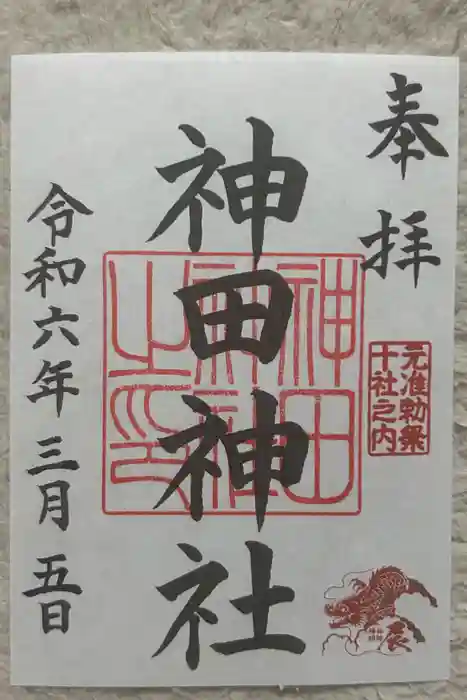 奉拝
元准勅祭
十社之内
辰
神田神社
神田神社之印
令和六年三月五日